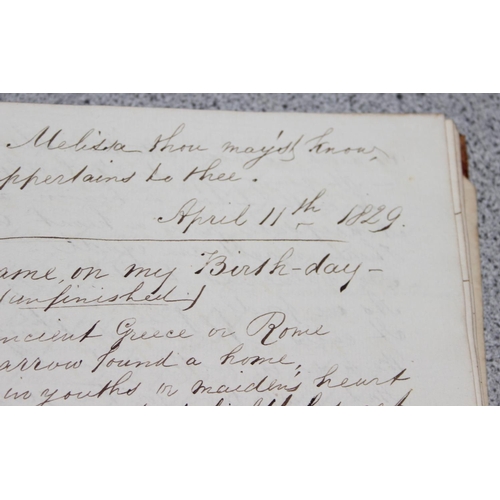 Melissa thou may'st know,
ppertains to thee.
April 11th 1829.
ame, on my Birth-day-
(unfinished)
ncient Greece or Rome
arrow found a home,
in youths or maidens heart